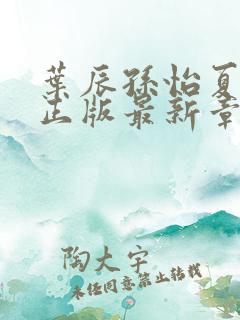 葉辰孫怡夏
正版最新章
陶大宇
未经同意禁止转载